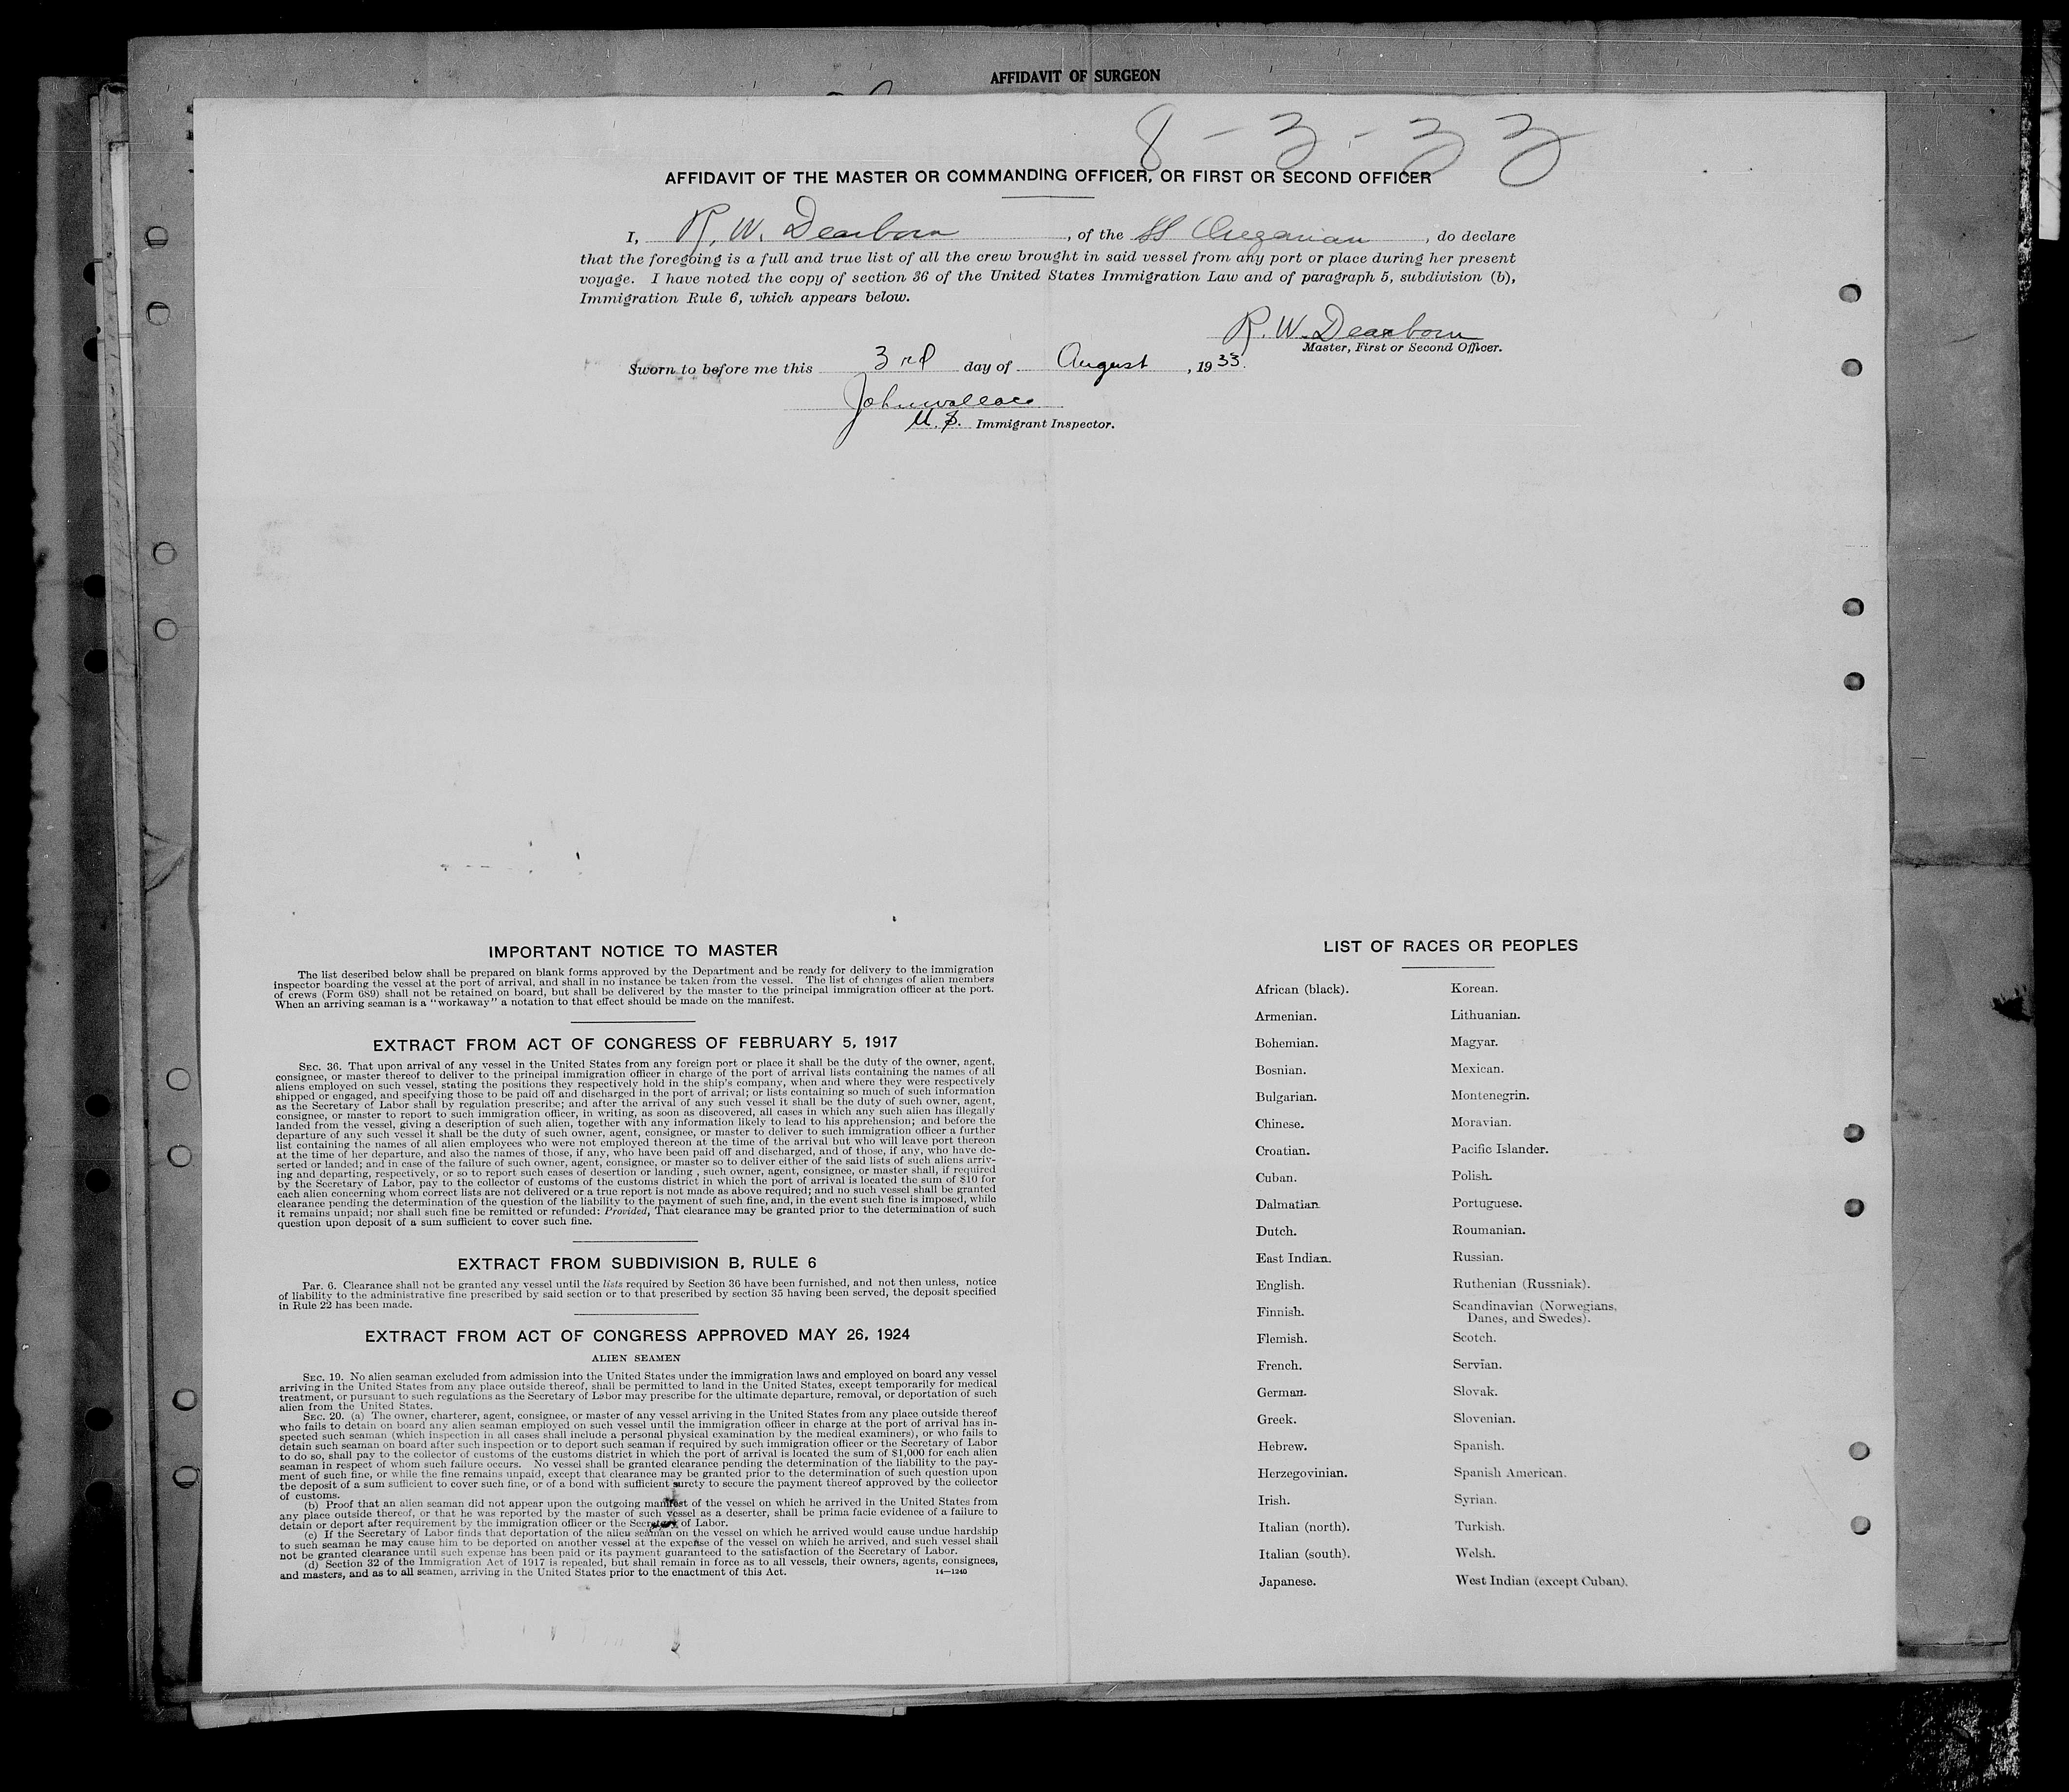 AFFIDAVIT OF SURGEON
8-3-33
AFFIDAVIT OF THE MASTER OR COMMANDING OFFICER, OR FIRST OR SECOND OFFICER
I, R. W. Dearborn, of the SS Oregonian, do declare
that the foregoing is a full and true list of all the crew brought in said vessel from any port or place during her present
voyage. I have noted the copy of section 36 of the United States Immigration Law and of paragraph 5, subdivision (b),
Immigration Rule 6, which appears below.
R. W. Dearborn
Master, First or Second Officer.
Sworn to before me this 3rd day of August, 1933.
John Wallace
U. S. Immigrant Inspector.
IMPORTANT NOTICE TO MASTER
The list described below shall be prepared on blank forms approved by the Department and be ready for delivery to the immigration
inspector boarding the vessel at the port of arrival, and shall in no instance be taken from the vessel. The list of changes of alien members
of crews (Form 689) shall not be retained on board, but shall be delivered by the master to the principal immigration officer at the port.
When an arriving seaman is a "workaway" a notation to that effect should be made on the manifest.
EXTRACT FROM ACT OF CONGRESS OF FEBRUARY 5, 1917
SEC. 36. That upon arrival of any vessel in the United States from any foreign port or place it shall be the duty of the owner, agent,
consignee, or master thereof to deliver to the principal immigration officer in charge of the port of arrival lists containing the names of all
aliens employed on such vessel, stating the positions they respectively hold in the ship's company, when and where they were respectively
shipped or engaged, and specifying those to be paid off and discharged in the port of arrival; or lists containing so much of such information
as the Secretary of Labor shall by regulation prescribe; and after the arrival of any such vessel it shall be the duty of such owner, agent,
consignee, or master to report to such immigration officer, in writing, as soon as discovered, all cases in which any such alien has illegally
landed from the vessel, giving a description of such alien, together with any information likely to lead to his apprehension; and before the
departure of any such vessel it shall be the duty of such owner, agent, consignee, or master to deliver to such immigration officer a further
list containing the names of all alien employees who were not employed thereon at the time of the arrival but who will leave port thereon
at the time of her departure, and also the names of those, if any, who have been paid off and discharged, and of those, if any, who have de-
serted or landed; and in case of the failure of such owner, agent, consignee, or master so to deliver either of the said lists of such aliens arriv-
ing and departing, respectively, or so to report such cases of desertion or landing , such owner, agent, consignee, or master shall, if required
by the Secretary of Labor, pay to the collector of customs of the customs district in which the port of arrival is located the sum of $10 for
each alien concerning whom correct lists are not delivered or a true report is not made as above required; and no such vessel shall be granted
clearance pending the determination of the question of the liability to the payment of such fine, and, in the event such fine is imposed, while
it remains unpaid; nor shall such fine be remitted or refunded: Provided, That clearance may be granted prior to the determination of such
question upon deposit of a sum sufficient to cover such fine.
EXTRACT FROM SUBDIVISION B, RULE 6
Par. 6. Clearance shall not be granted any vessel until the lists required by Section 36 have been furnished, and not then unless, notice
of liability to the administrative fine prescribed by said section or to that prescribed by section 35 having been served, the deposit specified
in Rule 22 has been made.
EXTRACT FROM ACT OF CONGRESS APPROVED MAY 26, 1924
ALIEN SEAMEN
SEC. 19. No alien seaman excluded from admission into the United States under the immigration laws and employed on board any vessel
arriving in the United States from any place outside thereof, shall be permitted to land in the United States, except temporarily for medical
treatment, or pursuant to such regulations as the Secretary of Labor may prescribe for the ultimate departure, removal, or deportation of such
alien from the United States.
SEC. 20. (a) The owner, charterer, agent, consignee, or master of any vessel arriving in the United States from any place outside thereof
who fails to detain on board any alien seaman employed on such vessel until the immigration officer in charge at the port of arrival has in-
spected such seaman (which inspection in all cases shall include a personal physical examination by the medical examiners), or who fails to
detain such seaman on board after such inspection or to deport such seaman if required by such immigration officer or the Secretary of Labor
to do so, shall pay to the collector of customs of the customs district in which the port of arrival is located the sum of $1,000 for each alien
seaman in respect of whom such failure occurs. No vessel shall be granted clearance pending the determination of the liability to the pay-
ment of such fine, or while the fine remains unpaid, except that clearance may be granted prior to the determination of such question upon
the deposit of a sum sufficient to cover such fine, or of a bond with sufficient surety to secure the payment thereof approved by the collector
of customs.
(b) Proof that an alien seaman did not appear upon the outgoing manifest of the vessel on which he arrived in the United States from
any place outside thereof, or that he was reported by the master of such vessel as a deserter, shall be prima facie evidence of a failure to
detain or deport after requirement by the immigration officer or the Secretary of Labor.
(c) If the Secretary of Labor finds that deportation of the alien seaman on the vessel on which he arrived would cause undue hardship
to such seaman he may cause him to be deported on another vessel at the expense of the vessel on which he arrived, and such vessel shall
not be granted clearance until such expense has been paid or its payment guaranteed to the satisfaction of the Secretary of Labor.
(d) Section 32 of the Immigration Act of 1917 is repealed, but shall remain in force as to all vessels, their owners, agents, consignees,
and masters, and as to all seamen, arriving in the United States prior to the enactment of this Act. 14—1240
LIST OF RACES OR PEOPLES
African (black).
Armenian.
Bohemian.
Bosnian.
Bulgarian.
Chinese.
Croatian.
Cuban.
Dalmatian.
Dutch.
East Indian.
English.
Finnish.
Flemish.
French.
German.
Greek.
Hebrew.
Herzegovinian.
Irish.
Italian (north).
Italian (south).
Japanese.
Korean.
Lithuanian.
Magyar.
Mexican.
Montenegrin.
Moravian.
Pacific Islander.
Polish.
Portuguese.
Roumanian.
Russian.
Ruthenian (Russniak).
Scandinavian (Norwegians,
Danes, and Swedes).
Scotch.
Servian.
Slovak.
Slovenian.
Spanish.
Spanish American.
Syrian.
Turkish.
Welsh.
West Indian (except Cuban).